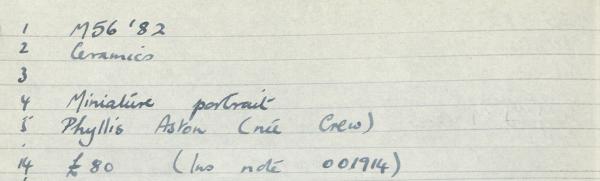 1 M56 '82
2 Ceramics
3
4 Miniature portrait
5 Phyllis Aston (née Crew)
14 £80 (Ins note 001914)